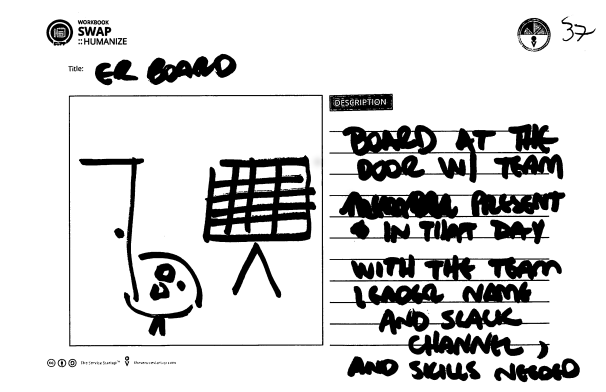 WORKBOOK
SWAP
::HUMANIZE
37
Title: ER BOARD
DESCRIPTION
BOARD AT THE
DOOR W/ TEAM
PRESENT
IN THAT DAY
WITH THE TEAM
LEADER NAME
AND SLACK
CHANNEL,
AND SKILLS NEEDED
The Service Startup™